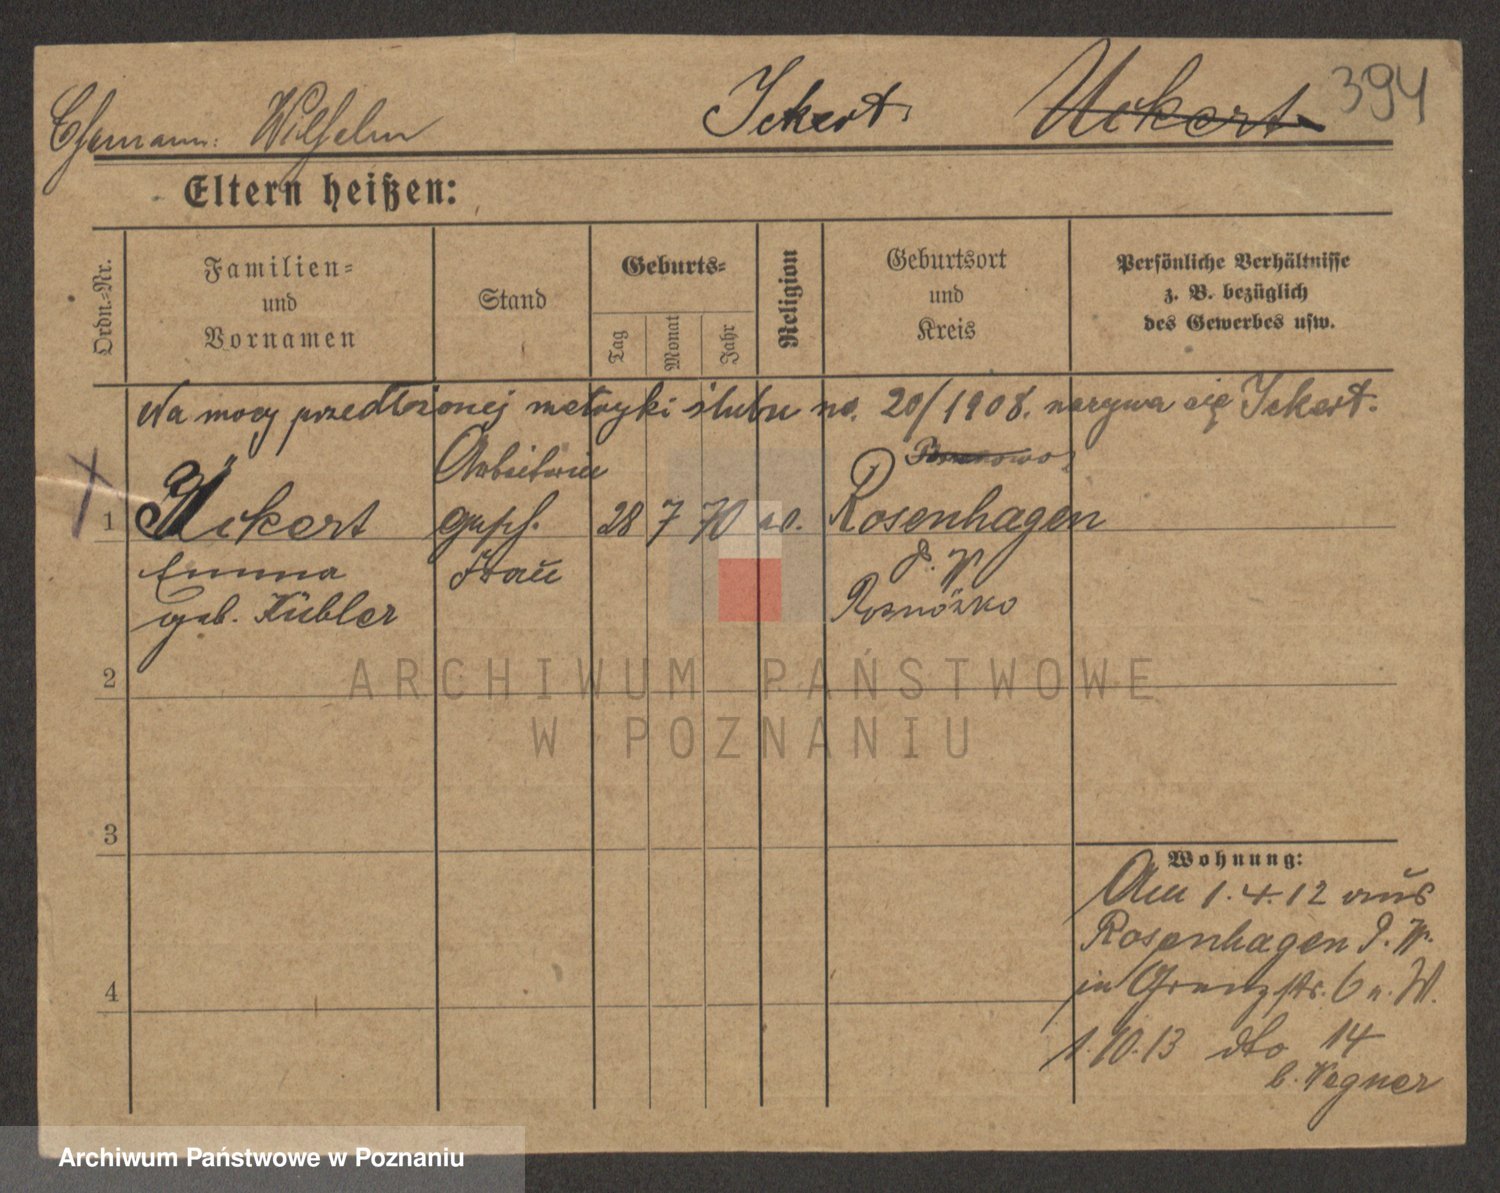 394
Ehemann: Wilhelm Ickert. Uckert
Eltern heißen:
Ordn.-Nr.
Familien-
und
Vornamen
Stand
Geburts-
Tag
Monat
Jahr
Religion
Geburtsort
und
Kreis
Persönliche Verhältnisse
z. B. bezüglich
des Gewerbes usw.
Na mocy przedłożonej metryki ślubu no. 20/1908. nazywa się Ickert.
Arbeiterin
1 Ückert gesch. 28 7 70 Rosenhagen
Emma Frau P. W.
geb. Kübler
2
3
4
Wohnung:
Am 1.4.12 aus
Rosenhagen P. W.
in Grenzstr. 6 n. W.
1.10.13 dto 14
b. Wegner
ARCHIWUM PAŃSTWOWE
W POZNANIU
Archiwum Państwowe w Poznaniu